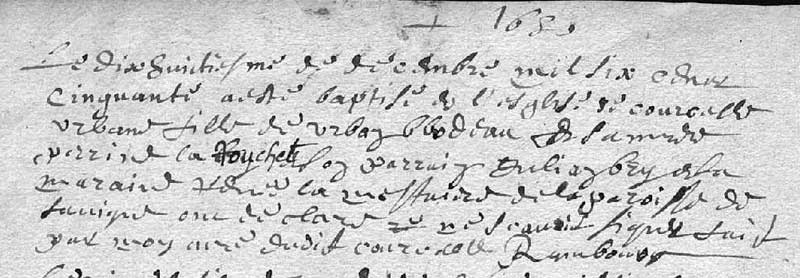 1650
Le dixhuitiesme de decembre mil six cens
Cinquante a este baptisé en l'esglise de courcelle
urbane fille de urban bodeau et sa mere
perrine la Royche son parrain Jullian bry et la
maraine Rene la mestaire de la paroisse de
ont declaré ne scavoir signer fait
par moy curé dudit courcelle Rambourg